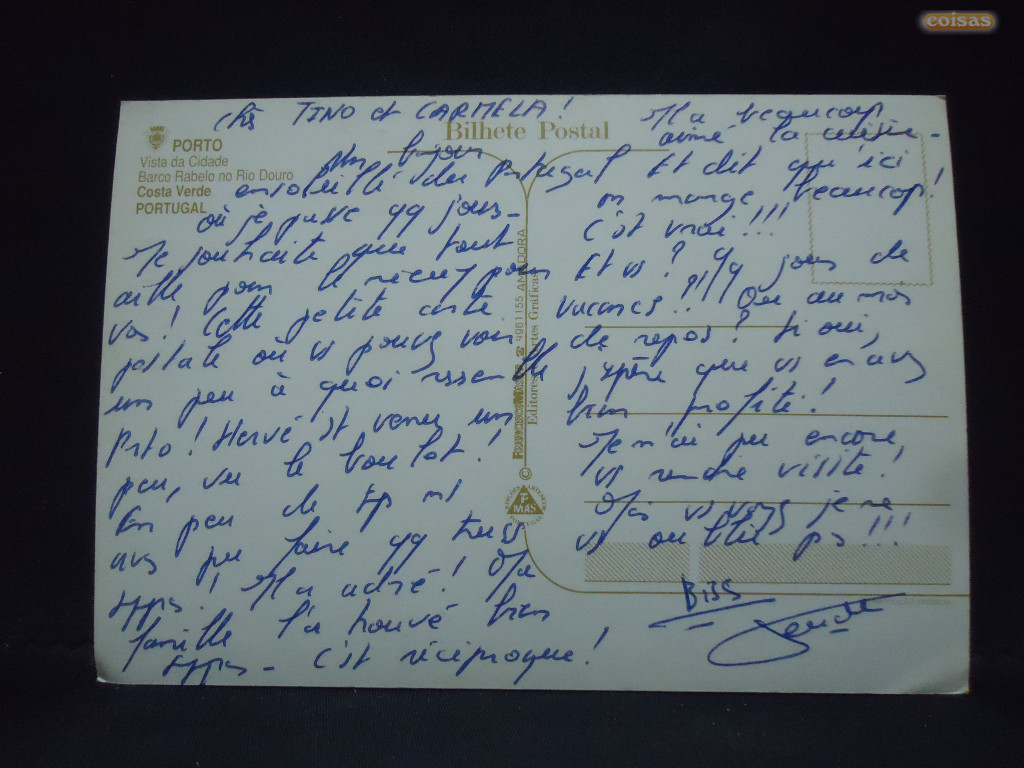 coisas
PORTO
Vista da Cidade
Barco Rabelo no Rio Douro
Costa Verde
PORTUGAL
Bilhete Postal
4981155 AMADORA
chs TINO et CARMELA!
Un bjour
ensoleillé du Portugal
où je passe qq jours -
Je souhaite que tout
aille pour le mieux pour
vos! Cette petite carte
postale où vs pouvez voir
un peu à quoi ressemble
Porto! Hervé est venu un
peu, vu le boulot!
En peu de tps ns
avs pu faire qq trucs
sympas! Il a adoré! Ma
famille l'a trouvé bien
sympa - c'est réciproque!
Il a beaucoup
aimé la cuisine -
Et dit qu'ici
on mange beaucoup!
C'est vrai!!!
Et vs? Qq jours de
vacances!! Ou au mois
de repos? Si oui,
j'espère que vs en avs
bien profité!
Je n'ai pu encore
vs rendre visite!
Mais vs voyez je ne
vs oublie ps!!!
BISS